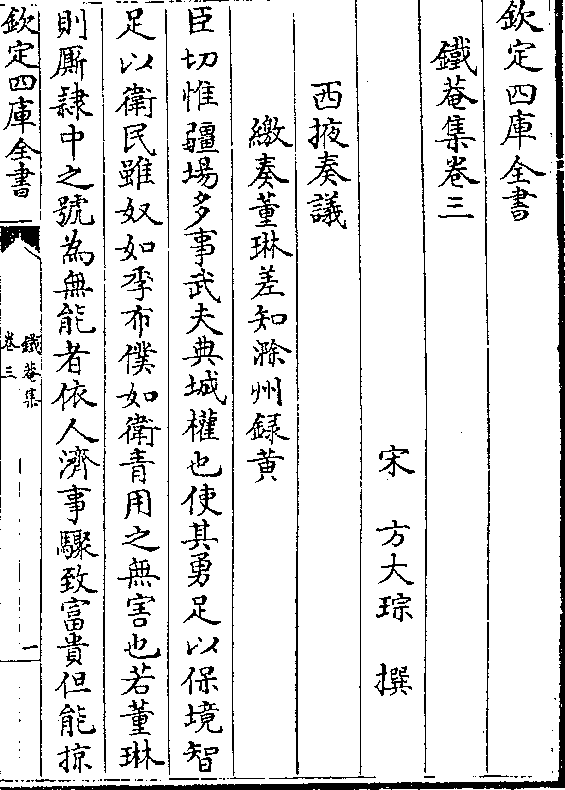 欽定四庫全書
鐵菴集卷三
宋 方大琮 撰
西掖奏議
繳奏董琳差知滁州録黄
臣切惟疆場多事武夫典城權也使其勇足以保境智
足以衛民雖奴如季布僕如衛青用之無害也若董琳
則厮隷中之號為無能者依人濟事驟致富貴但能掠
欽定四庫全書
鐵菴集
卷三
一